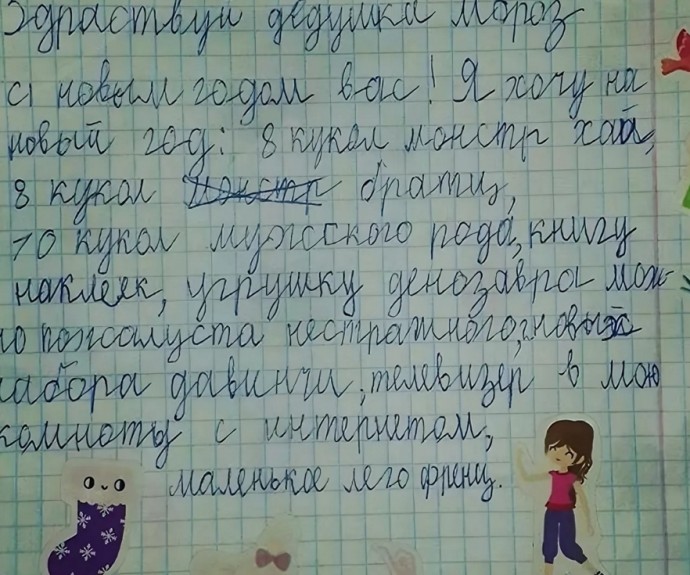 Здраствуй дедушка мороз
с новым годом вас! Я хочу на
новый год: 8 кукол монстр хай,
8 кукол монстр братц,
10 кукол мужсского рода, книгу
наклеяк, угрушку денозавра мож-
но пожалуста нестрашного, новых
набора давинчи, телевизер в мою
комноты с интернетом,
маленькое лего френц.